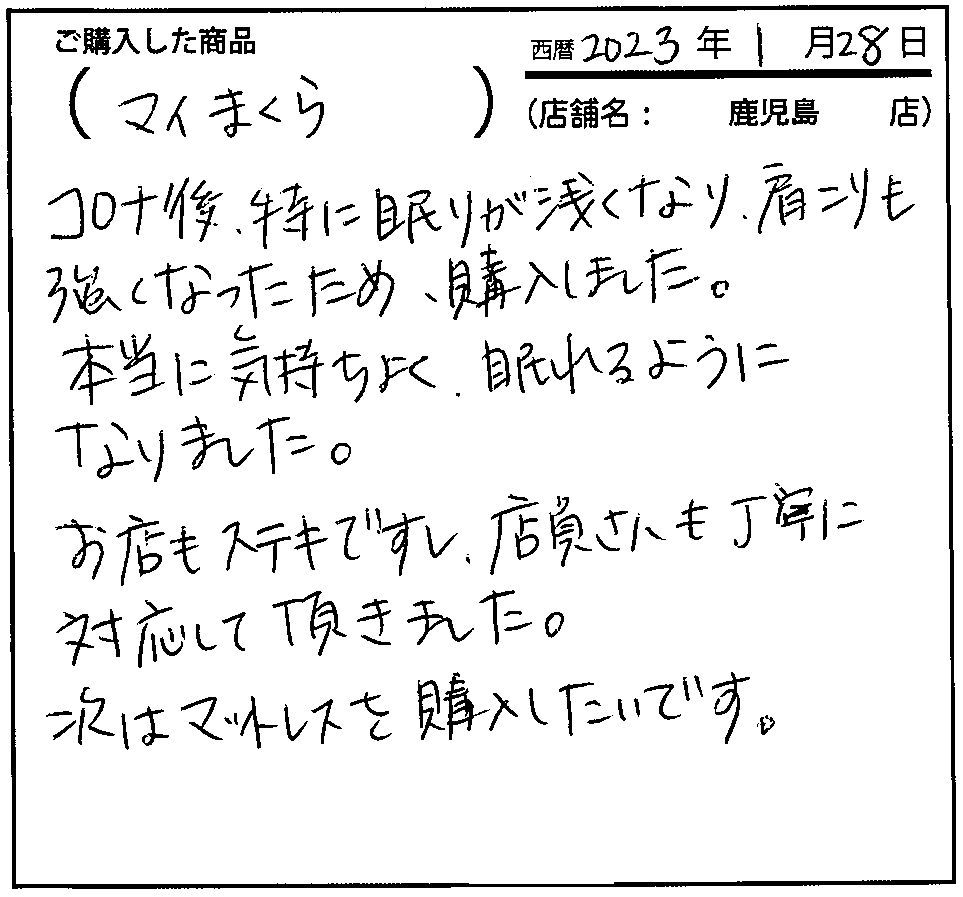 ご購入した商品
西暦 2023 年 1 月 28 日
( マイまくら )
(店舗名: 鹿児島 店)
コロナ後、特に眠りが浅くなり、肩こりも
強くなったため、購入しました。
本当に気持ちよく、眠れるように
なりました。
お店もステキですし、店員さんも丁寧に
対応して頂きました。
次はマットレスを購入したいです。